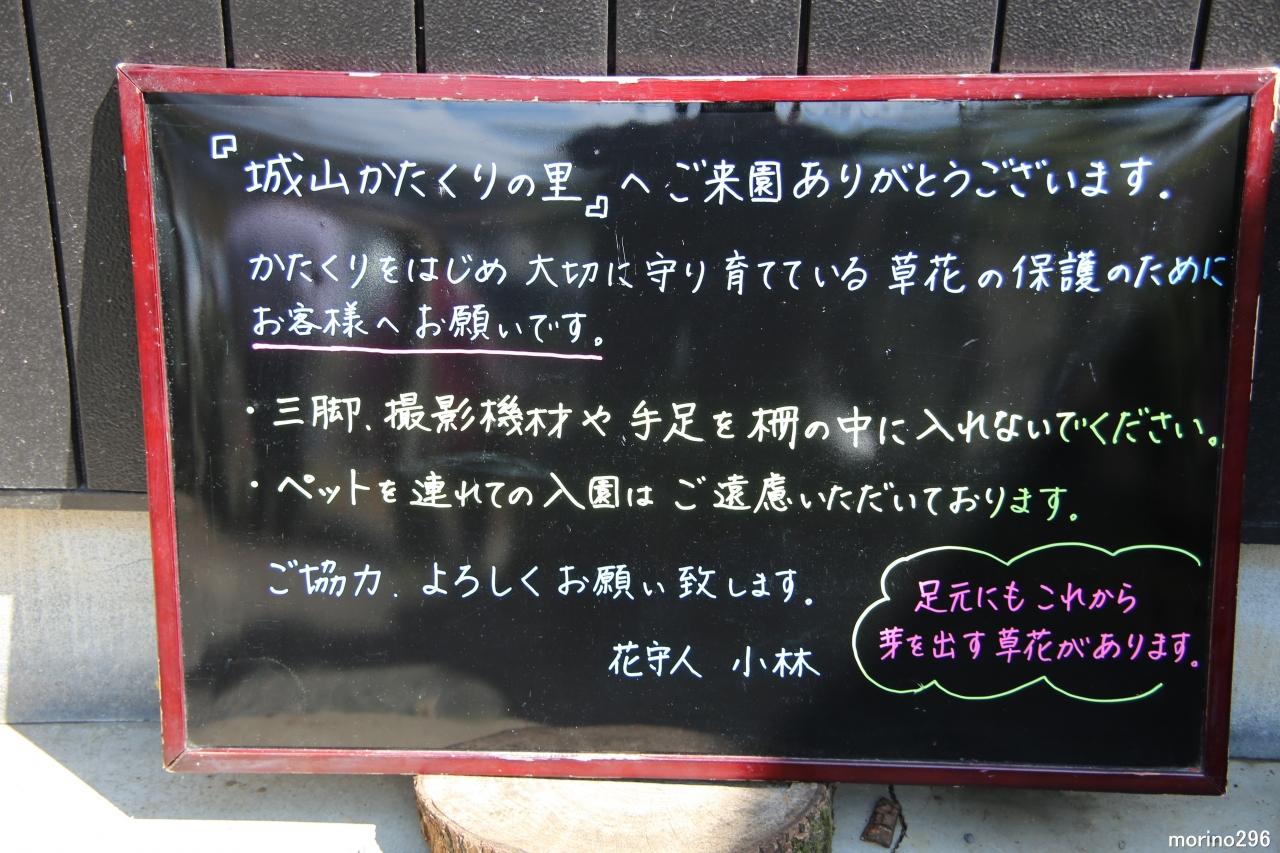 『城山かたくりの里』へご来園ありがとうございます。
かたくりをはじめ大切に守り育てている草花の保護のために
お客様へお願いです。
・三脚、撮影機材や手足を柵の中に入れないでください。
・ペットを連れての入園はご遠慮いただいております。
ご協力、よろしくお願い致します。
花守人 小林
足元にもこれから
芽を出す草花があります。
morino296